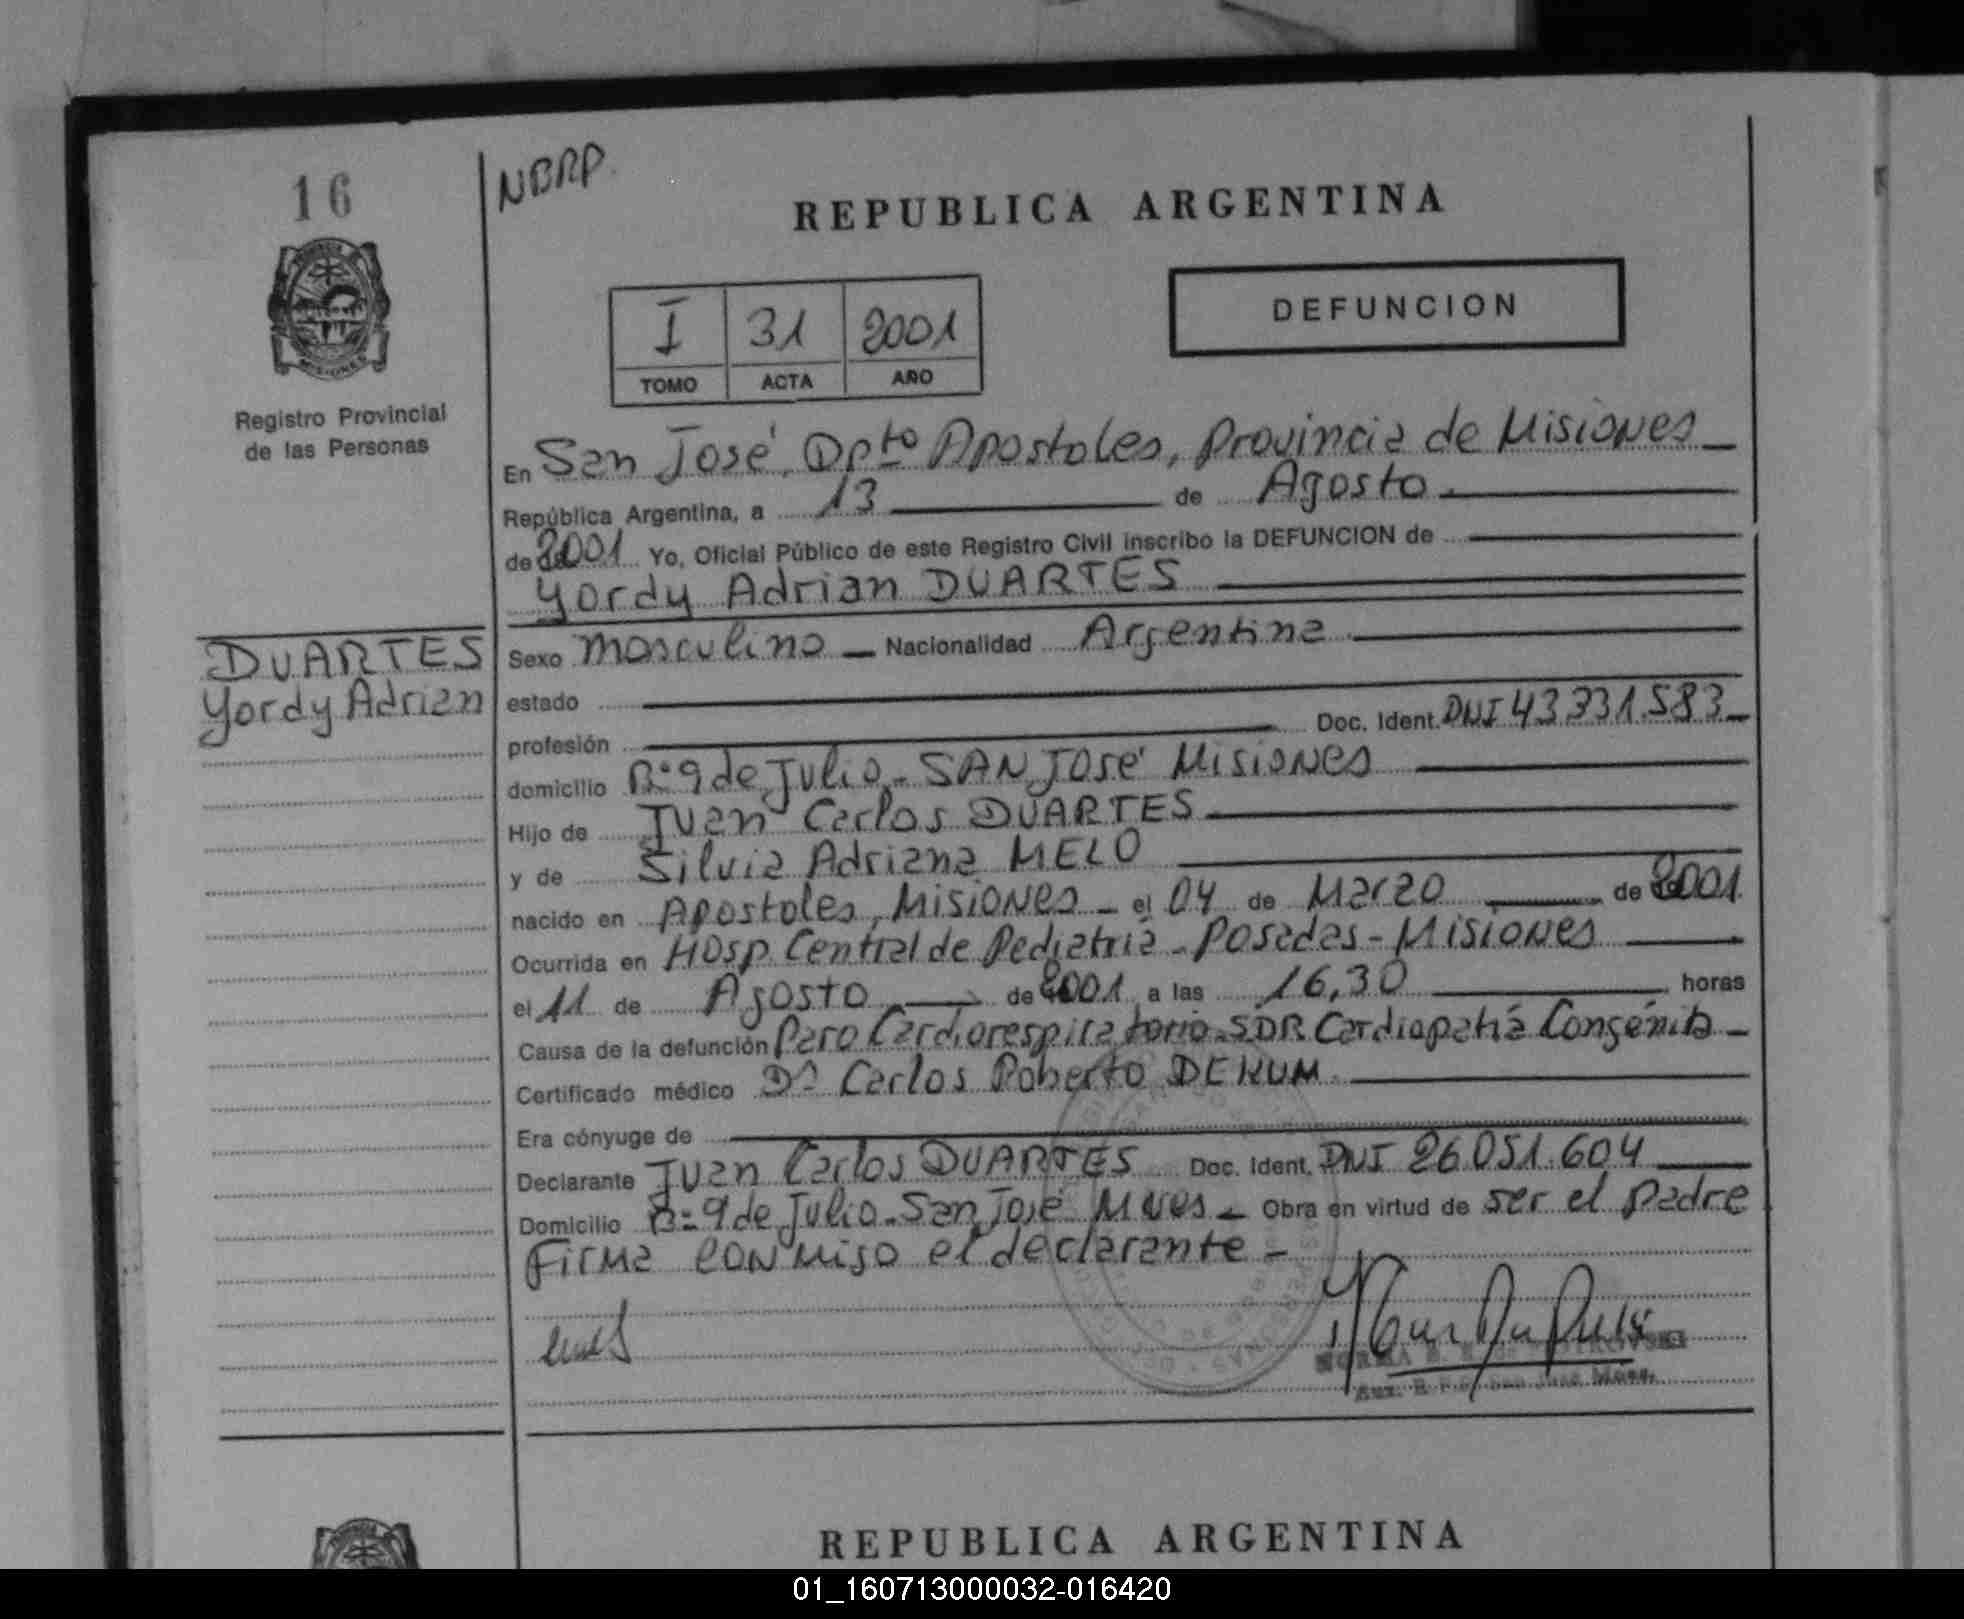 16
NBRP.
REPUBLICA ARGENTINA
PROVINCIA DE
MISIONES
Registro Provincial
de las Personas
I 31 2001
TOMO ACTA AÑO
DEFUNCION
En San José, Dpto Apostoles, Provincia de Misiones
República Argentina, a 13 de Agosto.
de 2001 Yo, Oficial Público de este Registro Civil inscribo la DEFUNCION de
Yordy Adrian DUARTES
DUARTES
Yordy Adrian
Sexo masculino Nacionalidad Argentina
estado
profesión Doc. Ident. DNI 43.331.583
domicilio B: 9 de Julio - SAN JOSé Misiones
Hijo de Juan Carlos DUARTES
y de Silvia Adriana MELO
nacido en Apostoles, Misiones - el 04 de Marzo de 2001
Ocurrida en Hosp. Central de Pediatria - Posadas - Misiones
el 11 de Agosto de 2001 a las 16,30 horas
Causa de la defunción Paro Cardiorespiratorio - SDR Cardiopatía Congénita -
Certificado médico Dr Carlos Roberto DEKUM
Era cónyuge de
Declarante Juan Carlos DUARTES Doc. Ident. DNI 26.051.604
Domicilio B: 9 de Julio - San José Mnes - Obra en virtud de ser el padre
Firma conmigo el declarante -
NORMA
Aux. R.P.P. San José Mnes.
REPUBLICA ARGENTINA
01_160713000032-016420